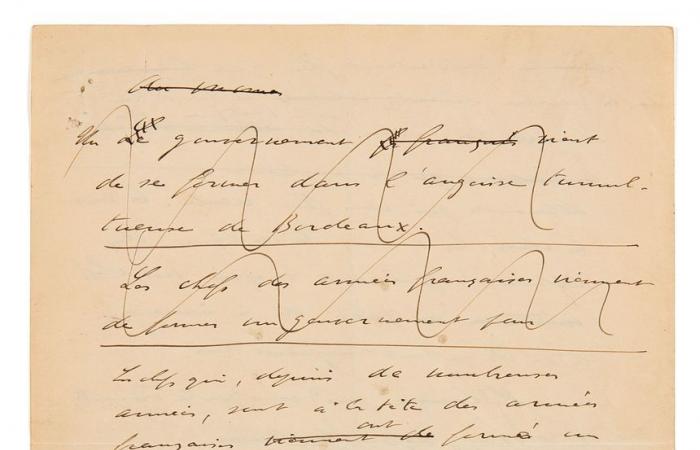 Au mome
Un Le gouvernement français vient
de se former dans l'angoisse tumul-
tueuse de Bordeaux.
Les chefs des armées françaises viennent
de former un gouvernement pour
Les chefs qui, depuis de nombreuses
années, sont à la tête des armées
françaises viennent de ont formé un